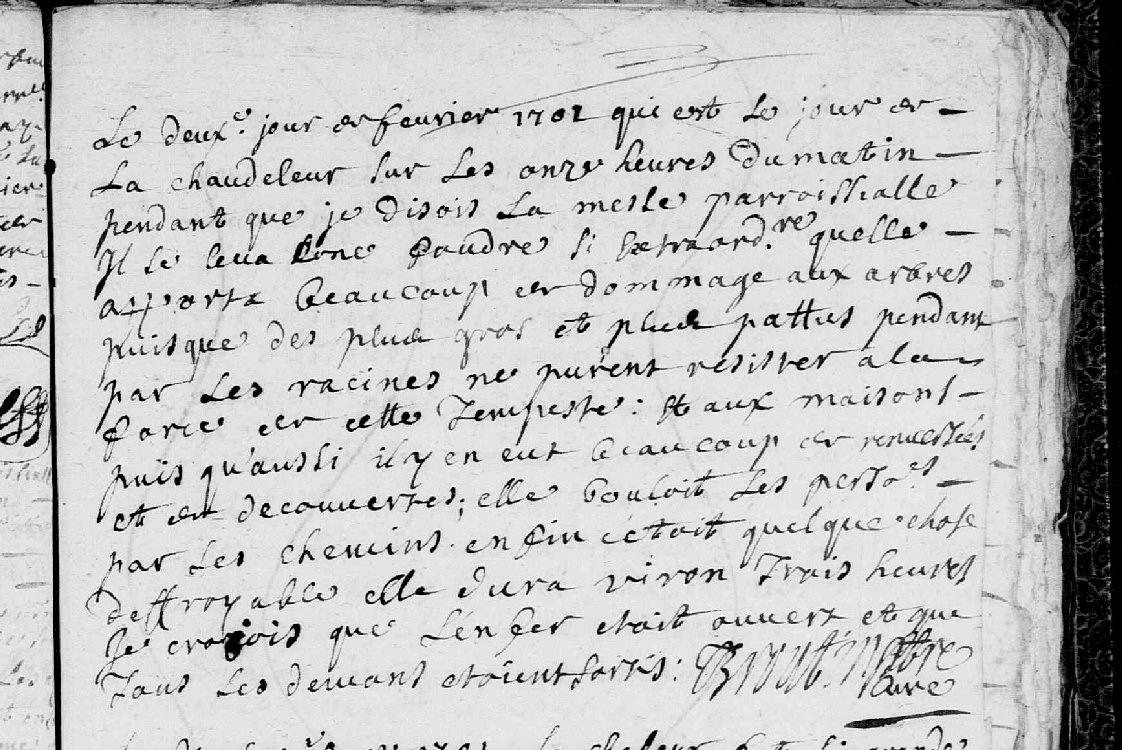 Le deux.e jour de fevrier 1702 qui est le jour de
La chaudeleur sur Les onze heures du matin
pendant que je disois La messe parroissialle
Il se leva une foudre si Extraord.re quelle
apporta beaucoup de dommage aux arbres
puisque des plus gros et plus pattus pendant
par Les racines ne purent resister a la
force de cette Tempeste: Et aux maisons
puis qu'aussi il y en eut beaucoup de renversées
et de decouvertes; elle bouloit Les perso.es
par Les chemins. enfin cetoit quelque chose
deffroyable elle dura viron Trois heures
Je croiois que L'enfer etoit ouvert et que
Tous Les demons etoient sortis:
Curé
la chaleur fut si grande